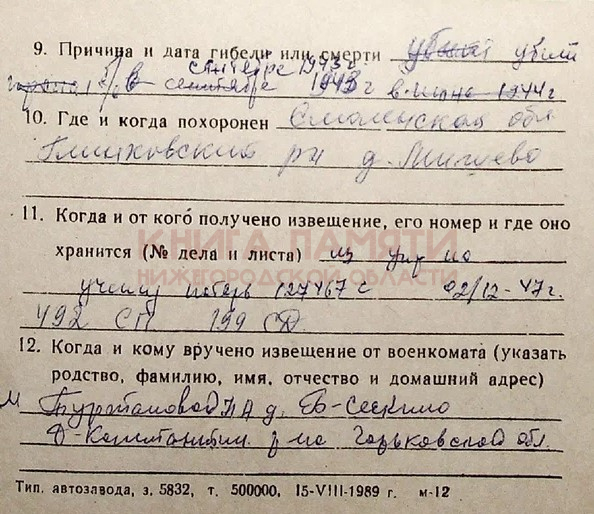 9. Причина и дата гибели или смерти убит убит
сентябре 1943 г
б/в сентябре 1943 г в июне 1944 г.
10. Где и когда похоронен Смоленская обл
Глинковский рн д. Мишево
11. Когда и от кого получено извещение, его номер и где оно
хранится (№ дела и листа) из упр по
КНИГА ПАМЯТИ
НИЖЕГОРОДСКОЙ ОБЛАСТИ
учету потерь 127467 с 02/12-47г.
492 СП 199 СД
12. Когда и кому вручено извещение от военкомата (указать
родство, фамилию, имя, отчество и домашний адрес)
м Буртановой НА д.
Д-Константин р-на Горьковской обл.
Тип. автозавода, з. 5832, т. 500000, 15-VIII-1989 г. м-12